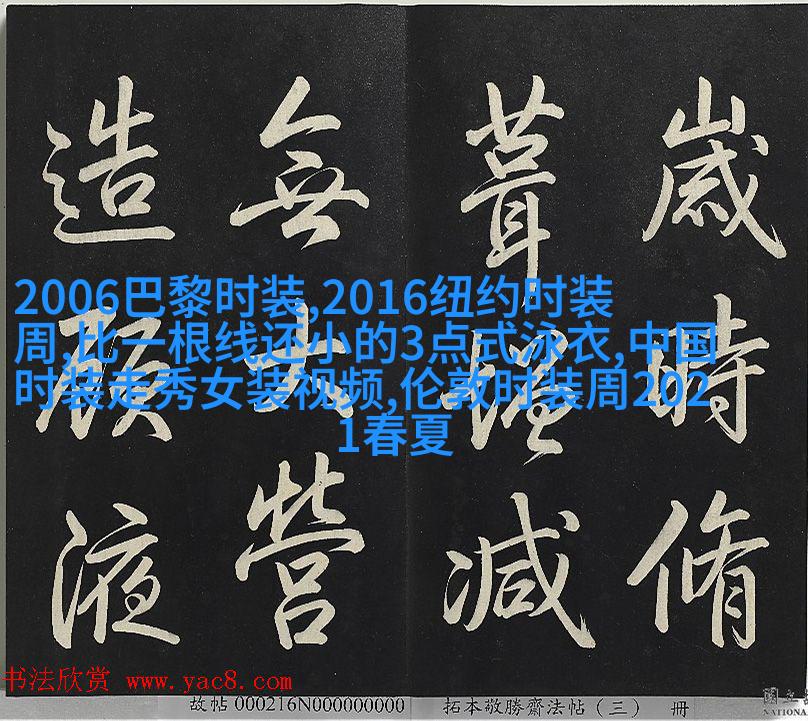 歲時脩
葺增減
無營
造液
2006巴黎时装,2016纽约时装
周,比一根线还小的3点式泳衣,中国
时装走秀女装视频,伦敦时装周202
1春夏
书法欣赏 www.yac8.com
故帖 000216N000000000 拓本敬勝齋法帖（三） 册
國立
NATIONA